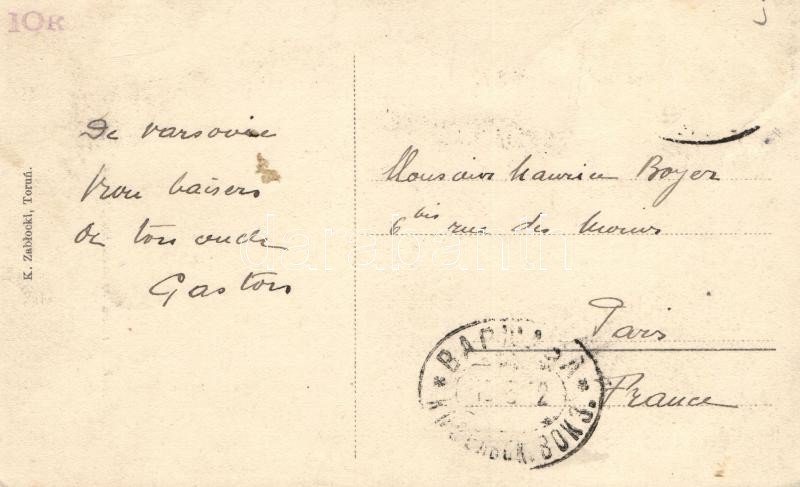 10K
K. Zabłocki, Toruń.
De varsovie
baisers
De ton oncle
Gaston
Monsieur Maurice Boyer
6 bis rue des
Paris
France
ВАРШАВА
ВОКЗ.
darabanth